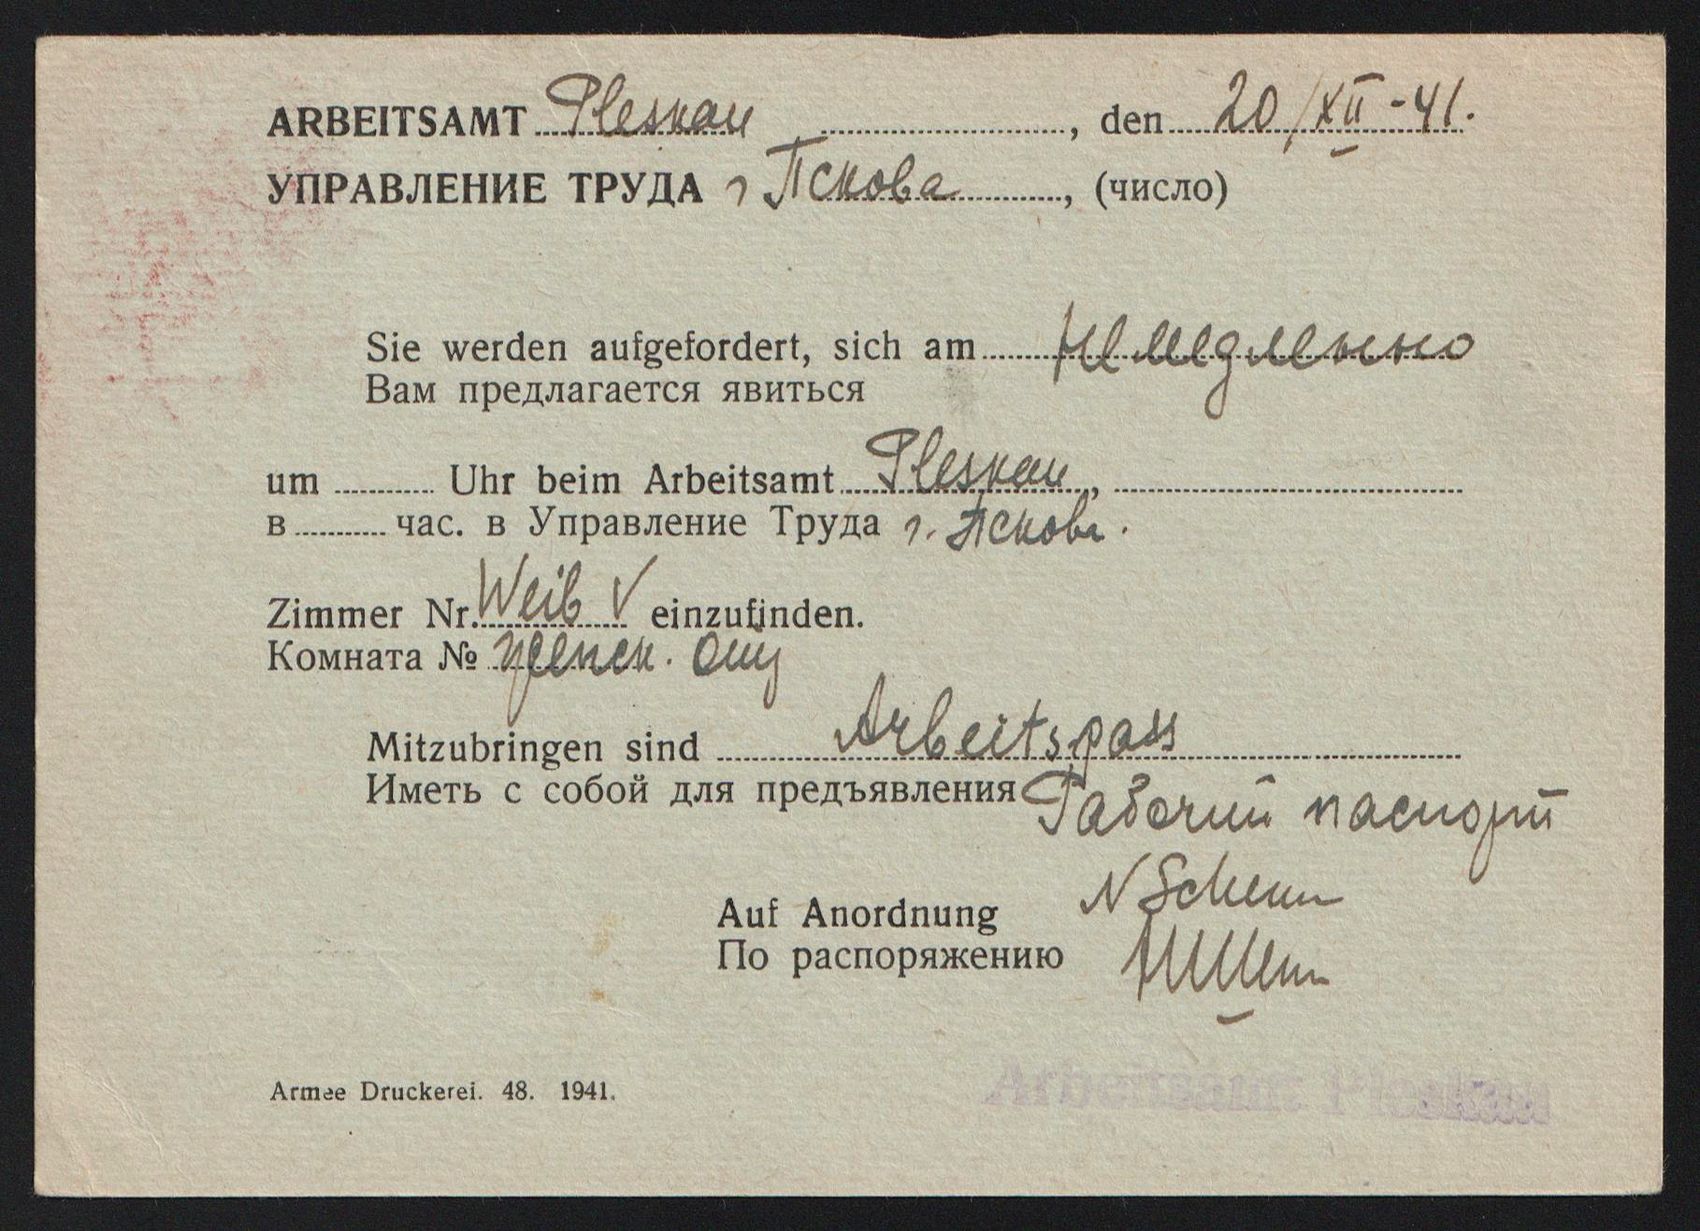 ARBEITSAMT Pleskau, den 20/XII-41.
УПРАВЛЕНИЕ ТРУДА г Пскова, (число)
Sie werden aufgefordert, sich am немедленно
Вам предлагается явиться
um ............ Uhr beim Arbeitsamt Pleskau,
в ........... час. в Управление Труда г. Пскова.
Zimmer Nr. Weib V einzufinden.
Комната №
Mitzubringen sind Arbeitspass
Иметь с собой для предъявления Рабочий паспорт
Auf Anordnung
По распоряжению
Armee Druckerei. 48. 1941.
Arbeitsamt Pleskau